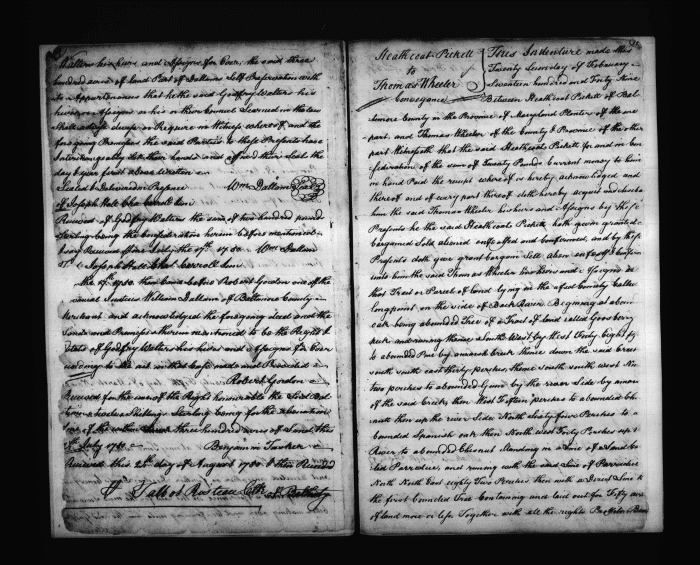 Walters his heirs and Assigns for Ever, the said three
hundred acres of land Part of Dallams Self Preservation with
its Appurtenances that he the said Godfrey Walters his
heirs or Assigns as his or their Councel Learned in the Law
Shall advise devise or Require in Witness whereof, and the
foregoing Premises the said Parties to these Presents have
Interchangeably set their hands and affixed their Seals the
day & year first above Written
Sealed & Delivered in Presence Wm Dallam Seal
of Joseph Hall Chas Carroll Junr
Received of Godfrey Walters the sum of two hundred pounds
Sterling being the Consideration herein before mentioned
I say Received after Lands, the 17th 1750 Wm Dallam
Ts Joseph Hall Chas Carroll Junr
17th 1750 then Came before Robert Gordon one of the
William Dallam of Baltimore County in
and acknowledged the foregoing deed and the
Lands and Premises therein mentioned to be the Right &
Estate of Godfrey Walters his heirs and Assigns for Ever
according to the act in that Case made and Provided
Robert Gordon
Received for the use of the Right honourable the Lord Bal
Sterling being for the alienation
fine of the within three hundred acres of Land this
July 1750 Benjamin Tasker
Received this 24th day of August 1750 & then Recorded
Talbot Risteau Clk
Heathcoat Pickett
to
Thomas Wheeler
Conveyance
This Indenture made this
Twenty day of February
Seventeen hundred and Forty Nine
Between Heathcoat Pickett of Bal
timore County in the Province of Maryland Planter of the one
part, and Thomas Wheeler of the County & Province of the other
part Witnesseth that the said Heathcoat Pickett for and in Con
sideration of the sum of Twenty Pounds Current money to him
in hand Paid the receipt whereof is hereby acknowledged and
thereof and of every part thereof doth hereby acquit and discharge
him the said Thomas Wheeler his heirs and Assigns by these
Presents he the said Heathcoat Pickett, hath given granted
bargained Sold aliened enfeoffed and Confirmed, and by these
Presents doth give grant bargain Sell alien enfeoff & Confirm
unto him the said Thomas Wheeler his Heirs and Assigns
that Tract or Parcel of Land lying in the afsd County Called
Longpoint on the side of Back River Begining at a bound
oak being a bounded Tree of a Tract of land called Gooseberry
neck and running thence South West by West Forty Eight
to a bounded Pine by a marsh Creek thence down the said Creek
South South east thirty perches thence South South West
two perches to a bounded Gum by the river side by a mouth
of the said Creek, then West Fifteen perches to a bounded
then up the river Side North Sixty four Perches to a
bounded Spanish oak then North West Forty Perches up
River to a bounded Chesnut Standing in a Line of a Land Ca
led Parradice, and runing with the said Line of Parradice
North North East eighty Two Perches, then with a Direct Line to
the first bounded Tree Containing and laid out for Fifty acres
of land more or less Together with all the rights